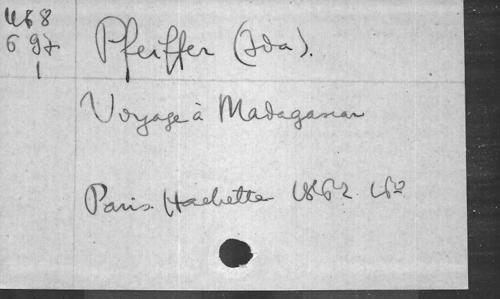 468
697
1
Pfeiffer (Ida).
Voyage à Madagascar
Paris. Hachette 1862. 16º